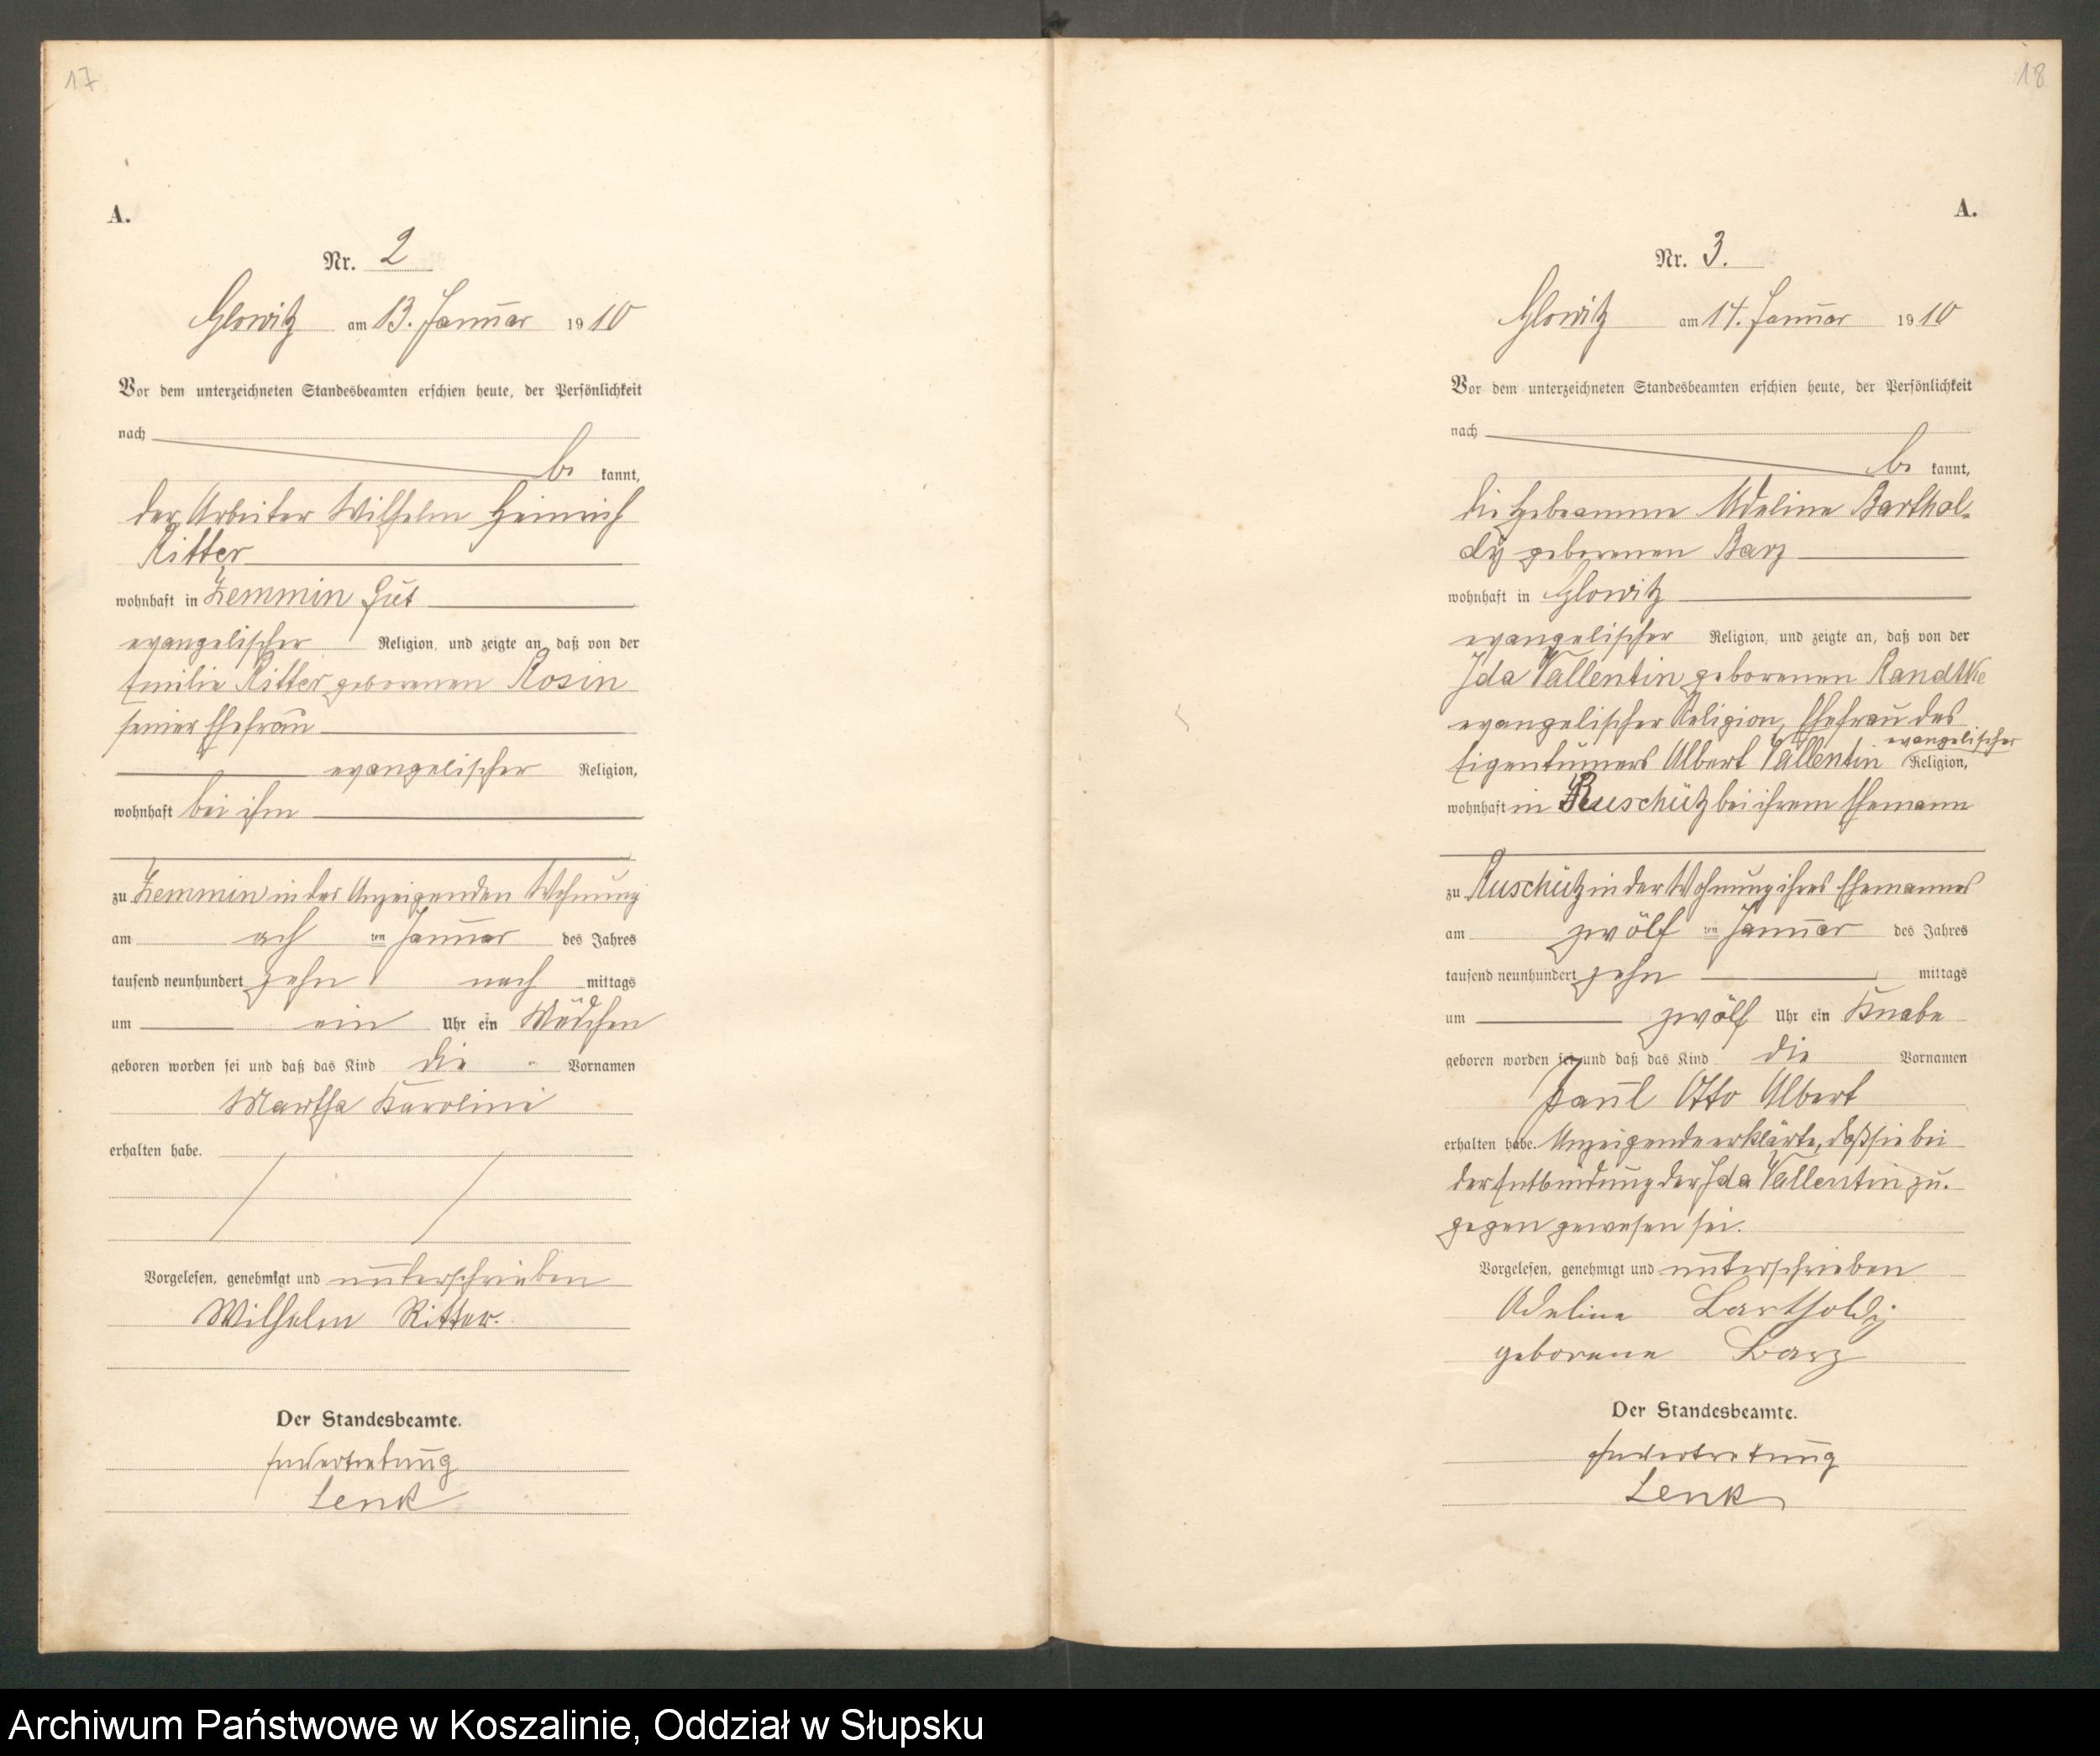 17
A.
Nr. 2
Glowitz am 13. Januar 1910
Vor dem unterzeichneten Standesbeamten erschien heute, der Persönlichkeit
nach
be kannt,
der Arbeiter Wilhelm Heinrich
Ritter
wohnhaft in Zemmin Gut
evangelischer Religion, und zeigte an, daß von der
Emilie Ritter geborenen Rosin
seiner Ehefrau
evangelischer Religion,
wohnhaft bei ihm
zu Zemmin in des Anzeigenden Wohnung
am ach ten Januar des Jahres
tausend neunhundert zehn nach mittags
um ein Uhr ein Mädchen
geboren worden sei und daß das Kind die Vornamen
Martha Karoline
erhalten habe.
Vorgelesen, genehmigt und unterschrieben
Wilhelm Ritter.
Der Standesbeamte.
In Vertretung
Lenk
18
A.
Nr. 3.
Glowitz am 14. Januar 1910
Vor dem unterzeichneten Standesbeamten erschien heute, der Persönlichkeit
nach
be kannt,
die Hebeamme Adeline Barthol-
dy geborenen Barz
wohnhaft in Glowitz
evangelischer Religion, und zeigte an, daß von der
Ida Vallentin geborenen Randtke
evangelischer Religion, Ehefrau des
evangelischer
Eigentümers Albert Vallentin Religion,
wohnhaft in Ruschütz bei ihrem Ehemann
zu Ruschütz in der Wohnung ihres Ehemannes
am zwölf ten Januar des Jahres
tausend neunhundert zehn mittags
um zwölf Uhr ein Knabe
geboren worden sei und daß das Kind die Vornamen
Paul Otto Albert
erhalten habe. Anzeigende erklärte, daß sie bei
der Entbindung der Ida Vallentin zu-
gegen gewesen sei.
Vorgelesen, genehmigt und unterschrieben
Adeline Bartholdy
geborene Barz
Der Standesbeamte.
In Vertretung
Lenk
Archiwum Państwowe w Koszalinie, Oddział w Słupsku